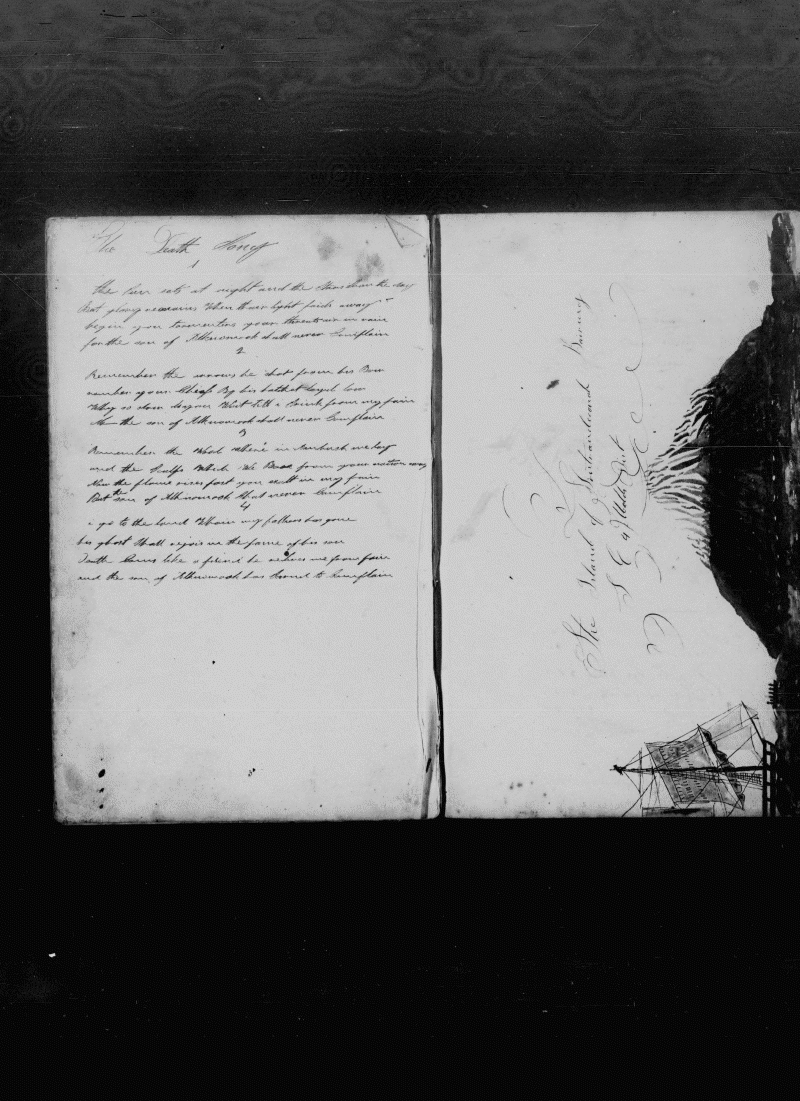 The Death Song
1
the sun sets at night and the Stars shun the day
But glory remains When their light fads away
begin you tormenters your threats are in vain
for the son of Alknomook shall never Complain
2
Remember the arrows he shot from his Bow
remember your Chiefs By his hatchet layd low
Why so slow do you Wait till I Shrink from my pain
No the son of Alknomook shall never Complain
3
Remember the Wood Where in Ambush we lay
and the Scalps Which We Bore from your nation away
Now the flame rises fast you exult in my pain
But the son of Alknomook Shal never Complain
4
I go to the land Where my father has gone
his ghost Shall rejoice in the fame of his son
Death Comes like a friend he relieves me from pain
and the son of Alknomook has Scorned to Complain
The Island of Burning
S E